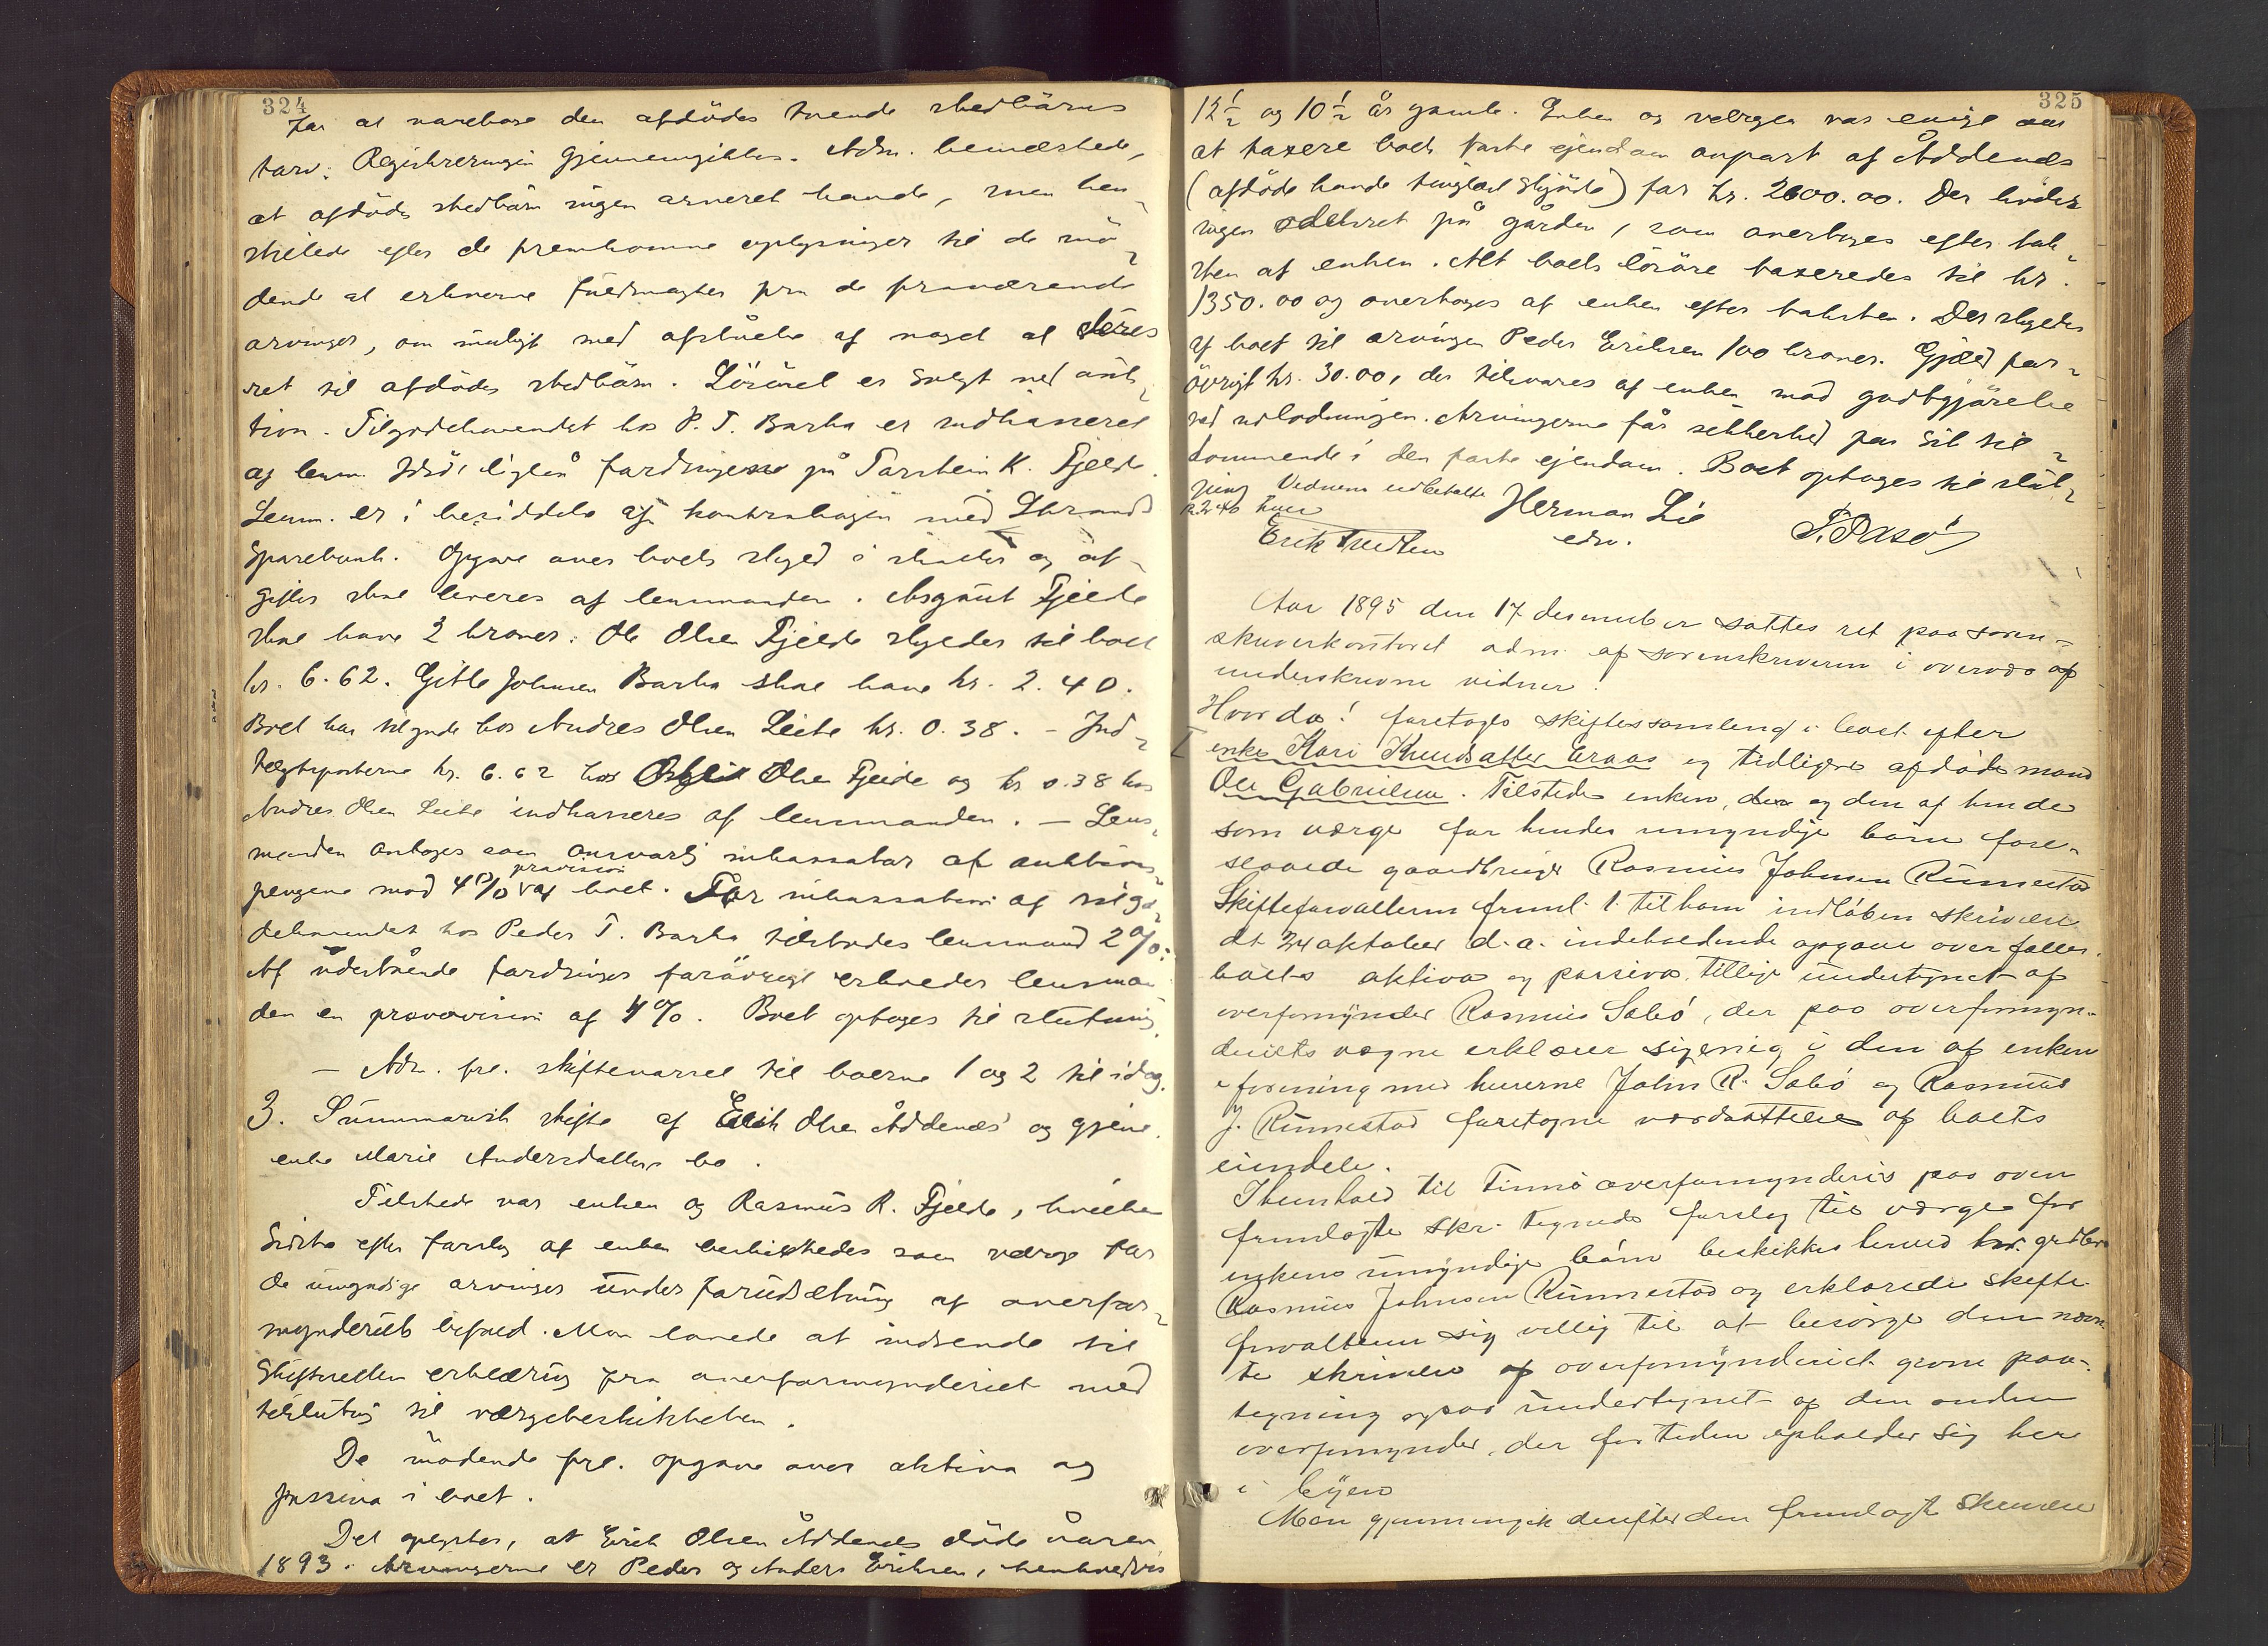 324
for at varetage den afdødes tvende stedbørns
tarv. Registreringen gjennemgikkes. Adm. bemærkede,
at afdødes stedbørn ingen arveret havde, men hen-
stillede efter de fremkomne oplysninger til de mø-
dende at erhverve fuldmagter fra de fraværende
arvinger, om muligt med afståelse af noget af deres
ret til afdødes stedbørn. Løsøret er solgt ved auk-
tion. Tilgodehavendet hos P. T. Barka er indkasseret
af lensm. ligeså fordringerne på Torstein K. Fjelde
Lensm. er i besiddelse af kontrabogen med Strand
Sparebank. Opgave over boets skyld i skatter og af-
gifter skal leveres af lensmanden. Asgaut Fjelde
skal have 2 kroner. Ole Olsen Fjelde skylder til boet
kr. 6.62. Gitle Johnsen Barka skal have kr. 2.40.
Boet har tilgode hos Andres Olsen Leite kr. 0.38. - Ind-
tægtsposterne kr. 6.62 hos Olsen Fjelde og kr 0.38 hos
Andres Olsen Leite indkasseres af lensmanden. — Lens-
manden antages som ansvarlig inkassator af auktions-
provision
pengene mod 4% af boet. For inkassation af tilgo-
dehavendet hos Peder T. Barka tilstodes lensmand 2%.
Af udestående fordringer forøvrigt erholder lensman-
den en provovision af 4%. Boet optages til slutning.
— Adm. frl. skiftevarsel til boerne 1 og 2 til idag.
3. Summarisk skifte af Erik Olsen Åddenes og gjenl.
enke Marie Andersdatters bo.
Tilstede var enken og Rasmus R. Fjelde, hvilken
sidste efter forslag af enken beskikkedes som værge for
de umyndige arvinger under forudsætning af overfor-
mynderiets bifald. Man lovede at indsende til
Skifteretten erklæring fra overformynderiet med
tilslutning til værgebeskikkelsen.
De mødende frl. opgave over aktiva og
passiva i boet.
Det oplystes, at Erik Olsen Åddenes døde våren
1893. Arvingerne er Peder og Anders Eriksen, henholdsvis
325
12½ og 10½ år gamle. Enken og værgen var enige om
at taxere boets faste ejendom anpart af Åddenes
(afdøde havde tinglæst skjøde) for kr. 2600.00. Der hviler
ingen odelsret på gården, som overtages efter tak-
sten af enken. Alt boets løsøre taxeredes til kr.
1350.00 og overtages af enken efter taksten. Der skyldes
af boet til arvingen Peder Eriksen 100 kroner. Gjæld for-
øvrigt kr. 30.00, der tilsvares af enken mod godtgjørelse
ved udlodningen. Arvingerne får sikkerhed for sit til-
kommende i den faste ejendom. Boet optages til slut-
ning Vidnerne udbetalte Herman Lie
kr. 2.40 hver edsv.
Erik Tredten
Aar 1895 den 17 desember sattes ret paa soren-
skriverkontoret adm. af sorenskriveren i overvær af
underskrevne vidner.
Hvor da! foretoges skiftessamling i boet efter
I enke Kari Knudsatter Graas og tidligere afdøde mand
Ole Gabrielsen. Tilstede enken, der og den af hende
som værge for hendes umyndige børn fore-
slaaede gaardbruger Rasmus Johnsen Runnestad
Skifteforvalteren freml. 1. til ham indløben skrivelse
dt. 24 oktober d.a. indeholdende opgave over fælles-
boets aktiva og passiva, tillige undertegnet af
overformynder Rasmus Søbø, der paa overformyn-
deriets vegne erklærer sig enig i den af enken
i forening med herrerne John R. Søbø og Rasmus
J. Runnestad foretagne værdsættelse af boets
eiendele.
I henhold til Finnø overformynderis paa oven
fremlagte skr. tegnede forslag til værge for
enkens umyndige børn beskikkes herved hr. grdbr.
Rasmus Johnsen Runnestad og erklærede skifte-
forvalteren sig villig til at besørge den nævn-
te skrivelse af overformynderiet givne paa-
tegning ogsaa undertegnet af den anden
overformynder, der for tiden opholder sig her
i byen
Man gjennemgik derefter den fremlagte skrivelse